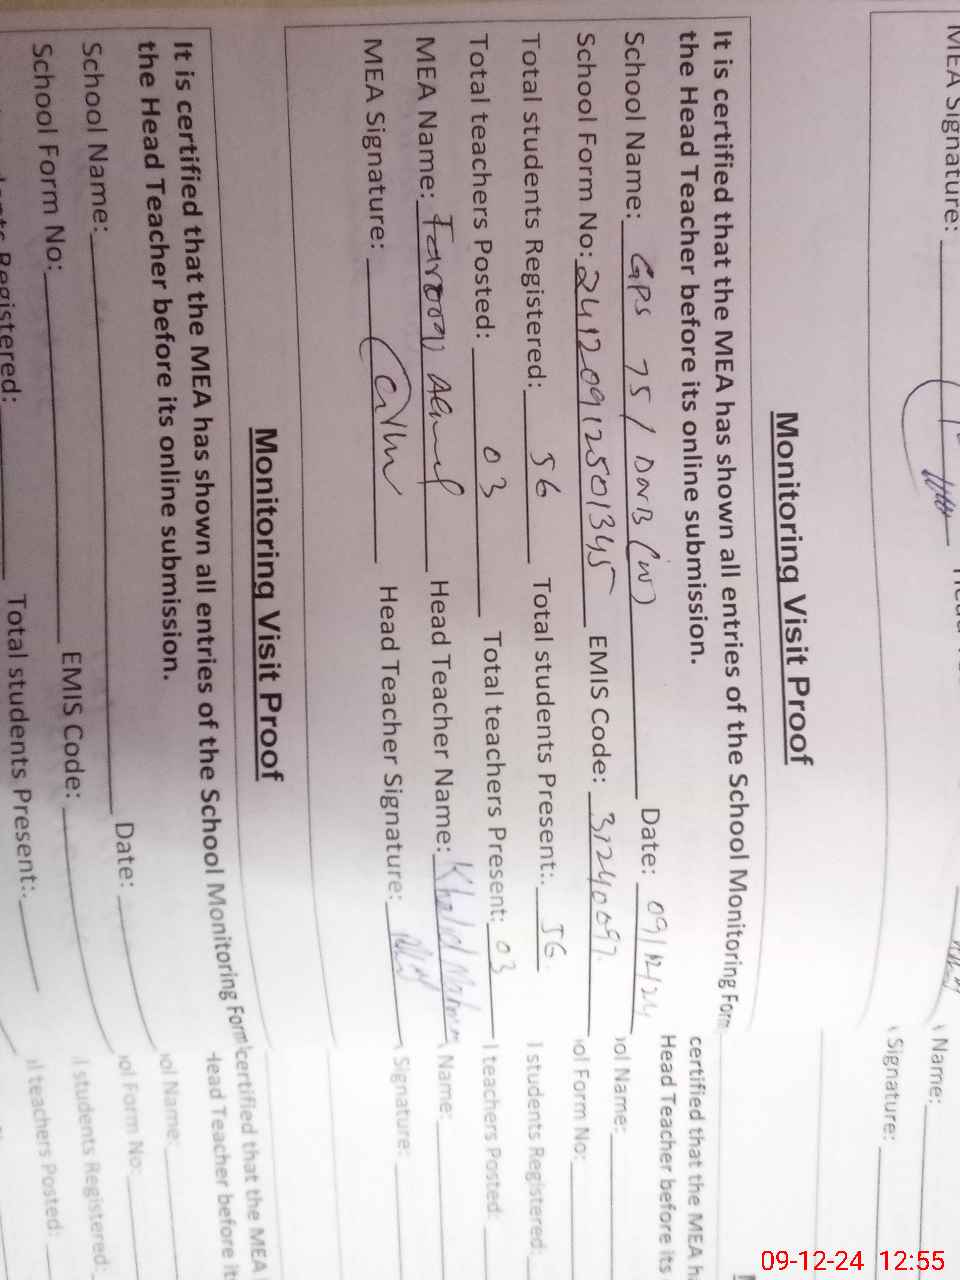 MEA Signature:
Name:
Signature:
Monitoring Visit Proof
It is certified that the MEA has shown all entries of the School Monitoring Form
the Head Teacher before its online submission.
School Name: GPS 75/DNB (W) Date: 09/12/24
School Form No: 24120912501345 EMIS Code: 31240097
Total students Registered: 56 Total students Present:. 56
Total teachers Posted: 03 Total teachers Present: 03
MEA Name: Farooq Head Teacher Name: Khalid
MEA Signature: Head Teacher Signature:
certified that the MEA
Head Teacher before its
ol Name:
ol Form No:
l students Registered:
l teachers Posted:
Name:
Signature:
Monitoring Visit Proof
It is certified that the MEA has shown all entries of the School Monitoring Form
the Head Teacher before its online submission.
School Name: Date:
School Form No: EMIS Code:
Registered: Total students Present:.
certified that the MEA
Head Teacher before it
ol Name:
ol Form No:
l students Registered:
l teachers Posted:
09-12-24 12:55